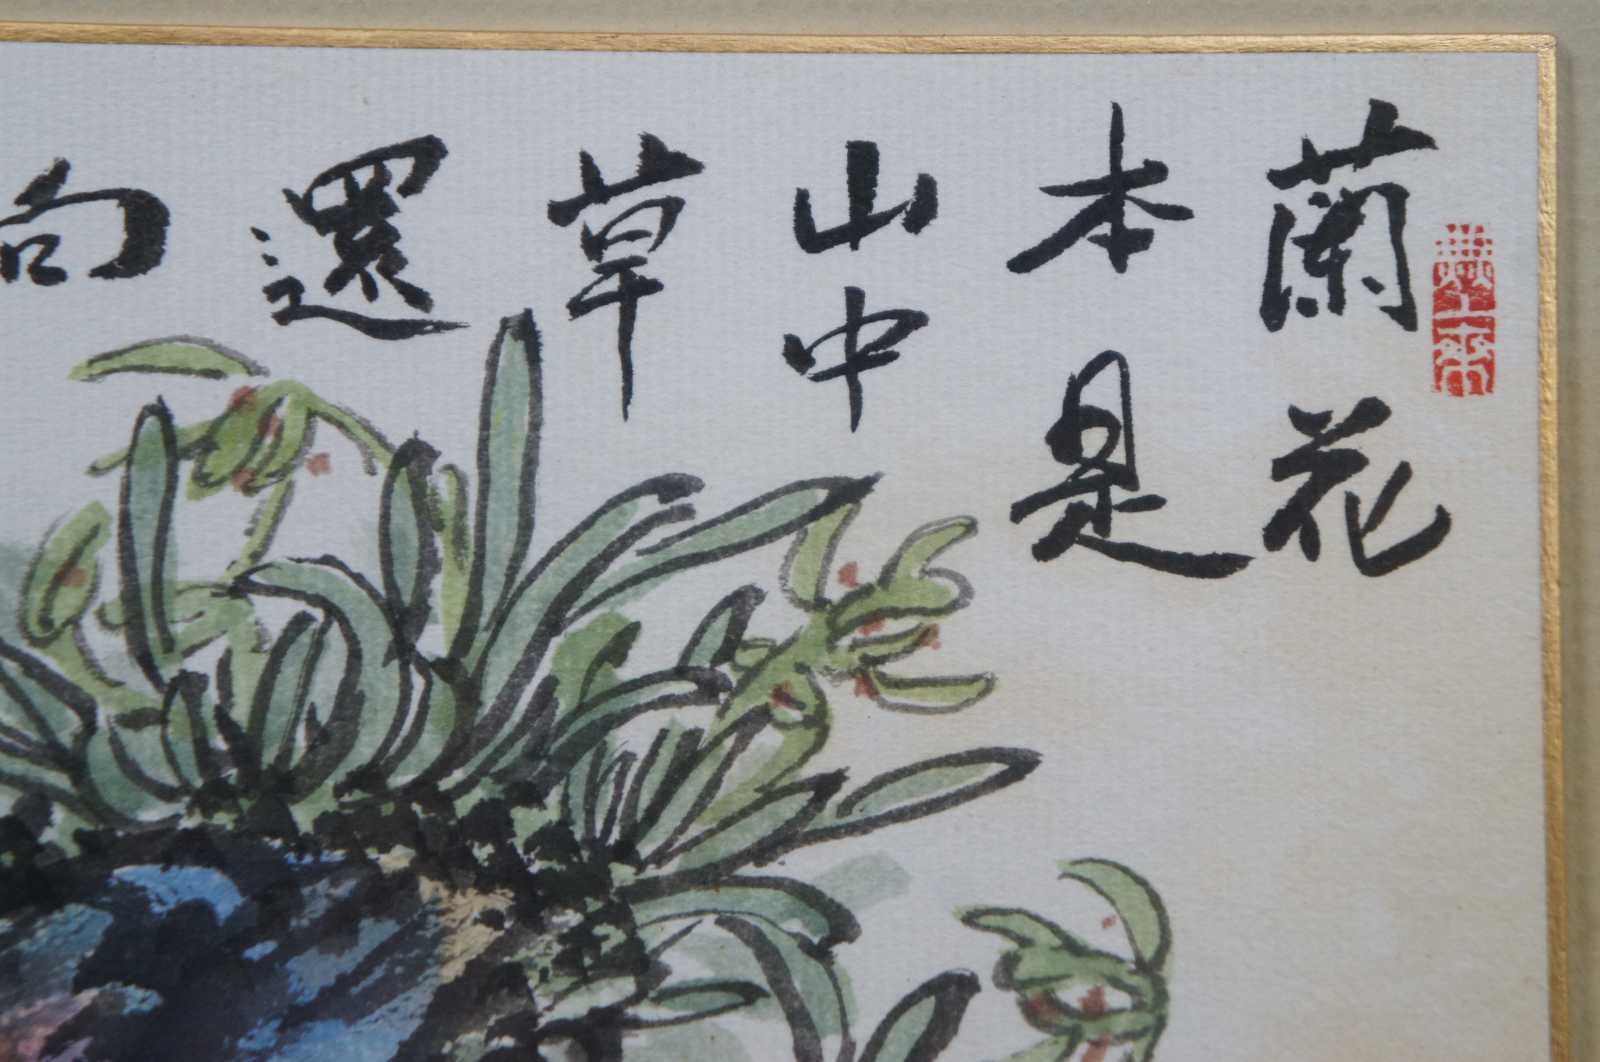 蘭花
本是
山中
草
還
向